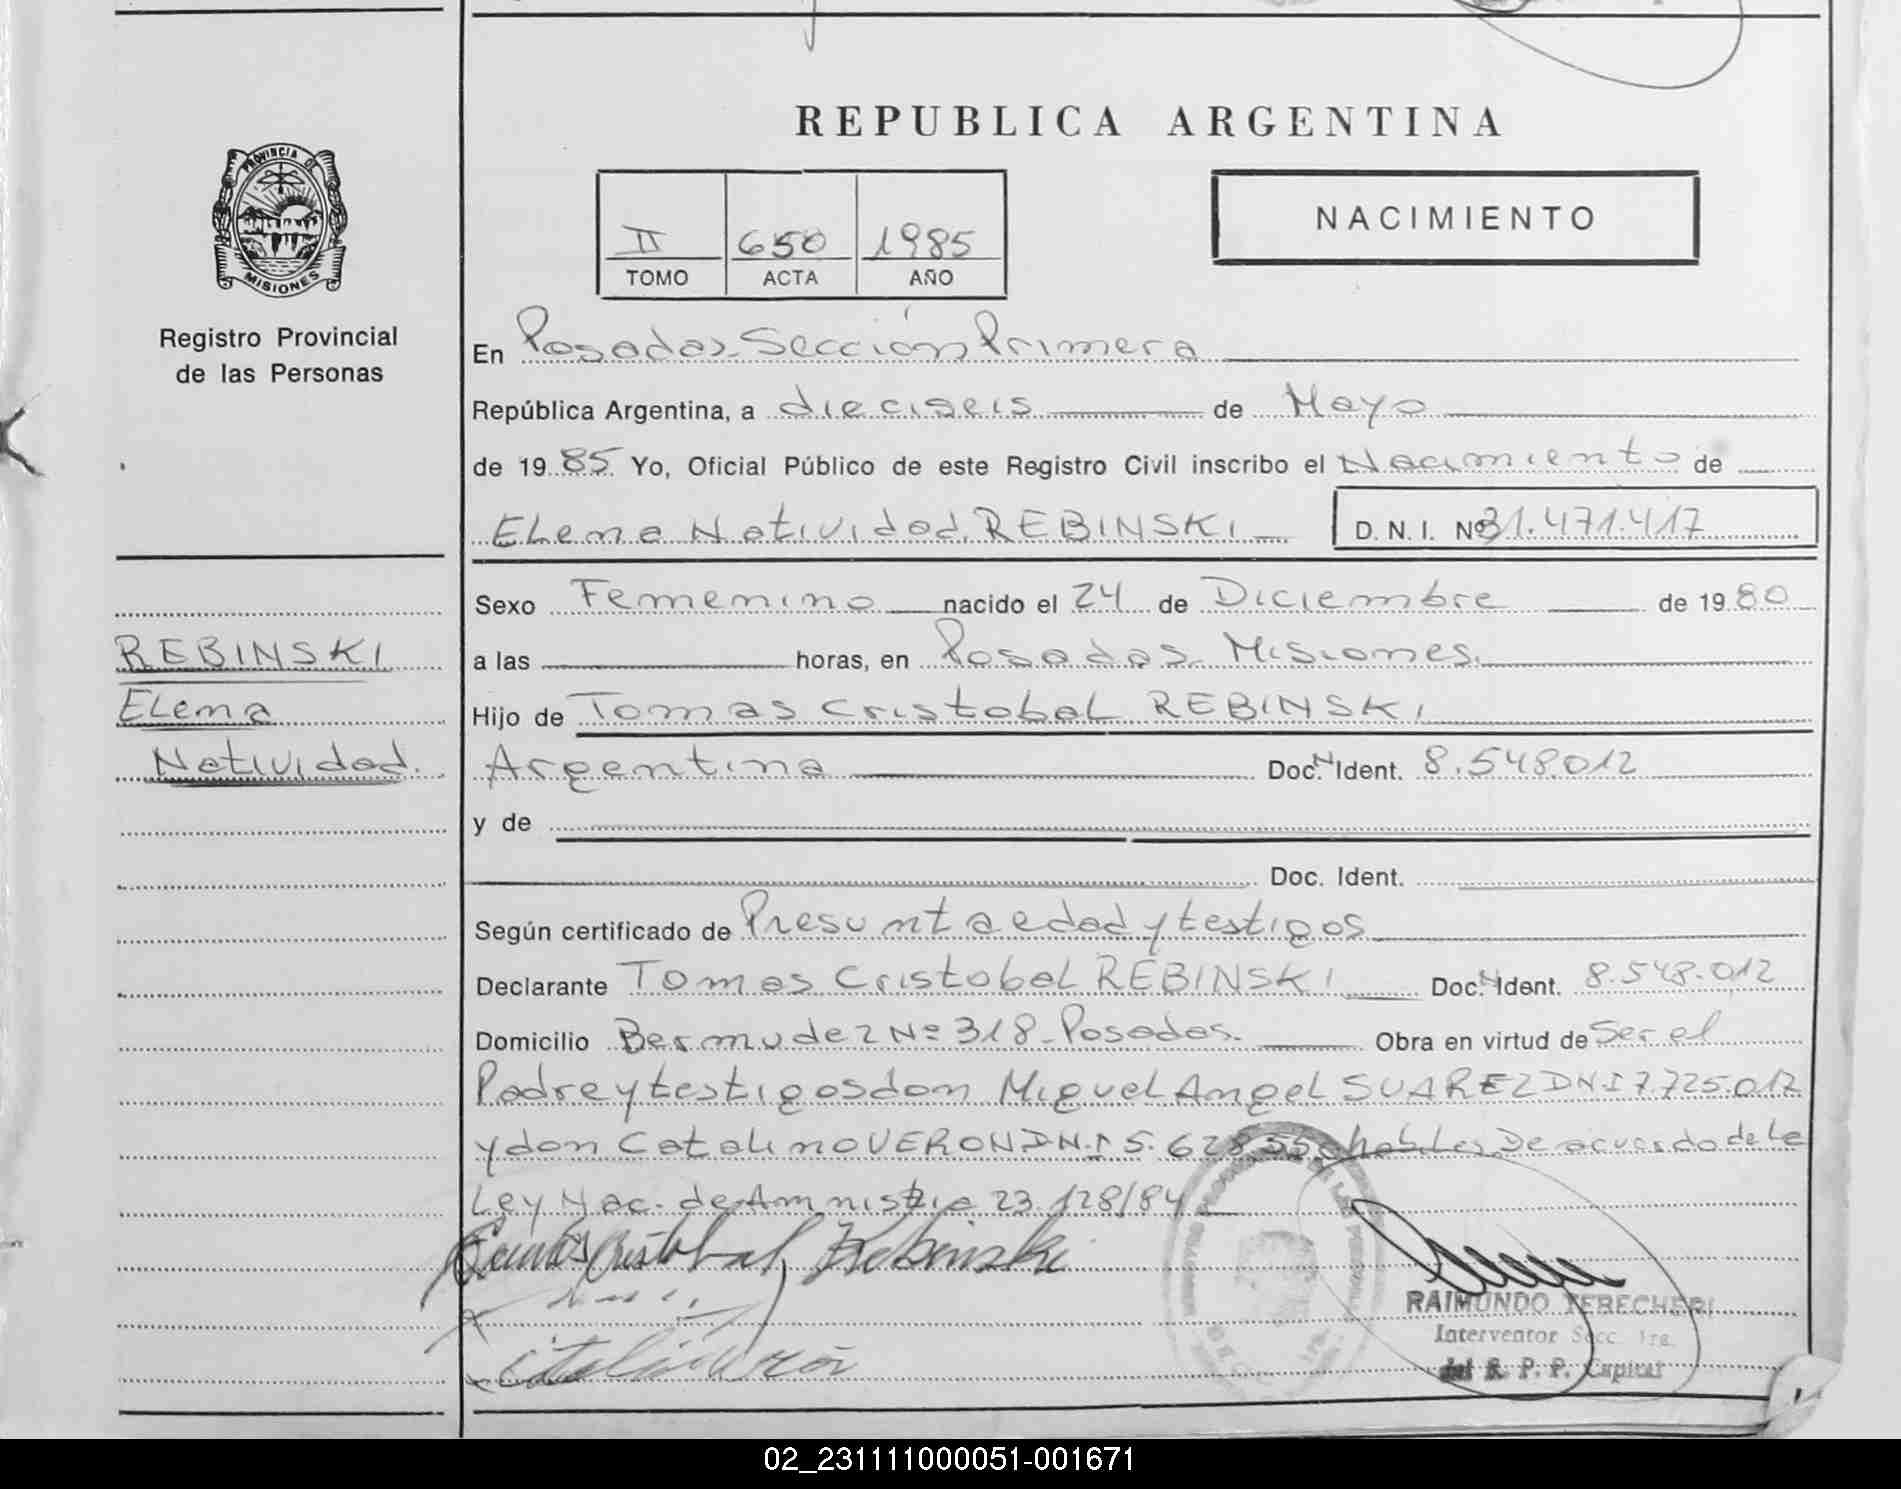 REPUBLICA ARGENTINA
PROVINCIA DE
MISIONES
II 650 1985
TOMO ACTA AÑO
NACIMIENTO
Registro Provincial
de las Personas
En Posadas Sección Primera
República Argentina, a dieciseis de Mayo
de 19 85 Yo, Oficial Público de este Registro Civil inscribo el Nacimiento de
Elena Natividad REBINSKI D. N. I. Nº 31.471.417
Sexo Femenino nacido el 24 de Diciembre de 19 80
REBINSKI
Elena
Natividad.
a las horas, en Posadas Misiones.
Hijo de Tomas Cristobal REBINSKI
Argentina Doc. N Ident. 8.548.012
y de
Doc. Ident.
Según certificado de Presunta edad y testigos
Declarante Tomas Cristobal REBINSKI Doc. N Ident. 8.548.012
Domicilio Bermudez Nº 318 - Posadas. Obra en virtud de Ser el
Padre y testigos don Miguel Angel SUAREZ DN.I 7.725.012
y don Catalino VERON DN.I 5.628.55 habiles De acuerdo de La
Ley Nac. de Amnistia 23.128/84
Cristobal Rebinski
RAIMUNDO TERECHERI
Interventor Secc. 1ra.
del R. P. P. Capital
02_231111000051-001671